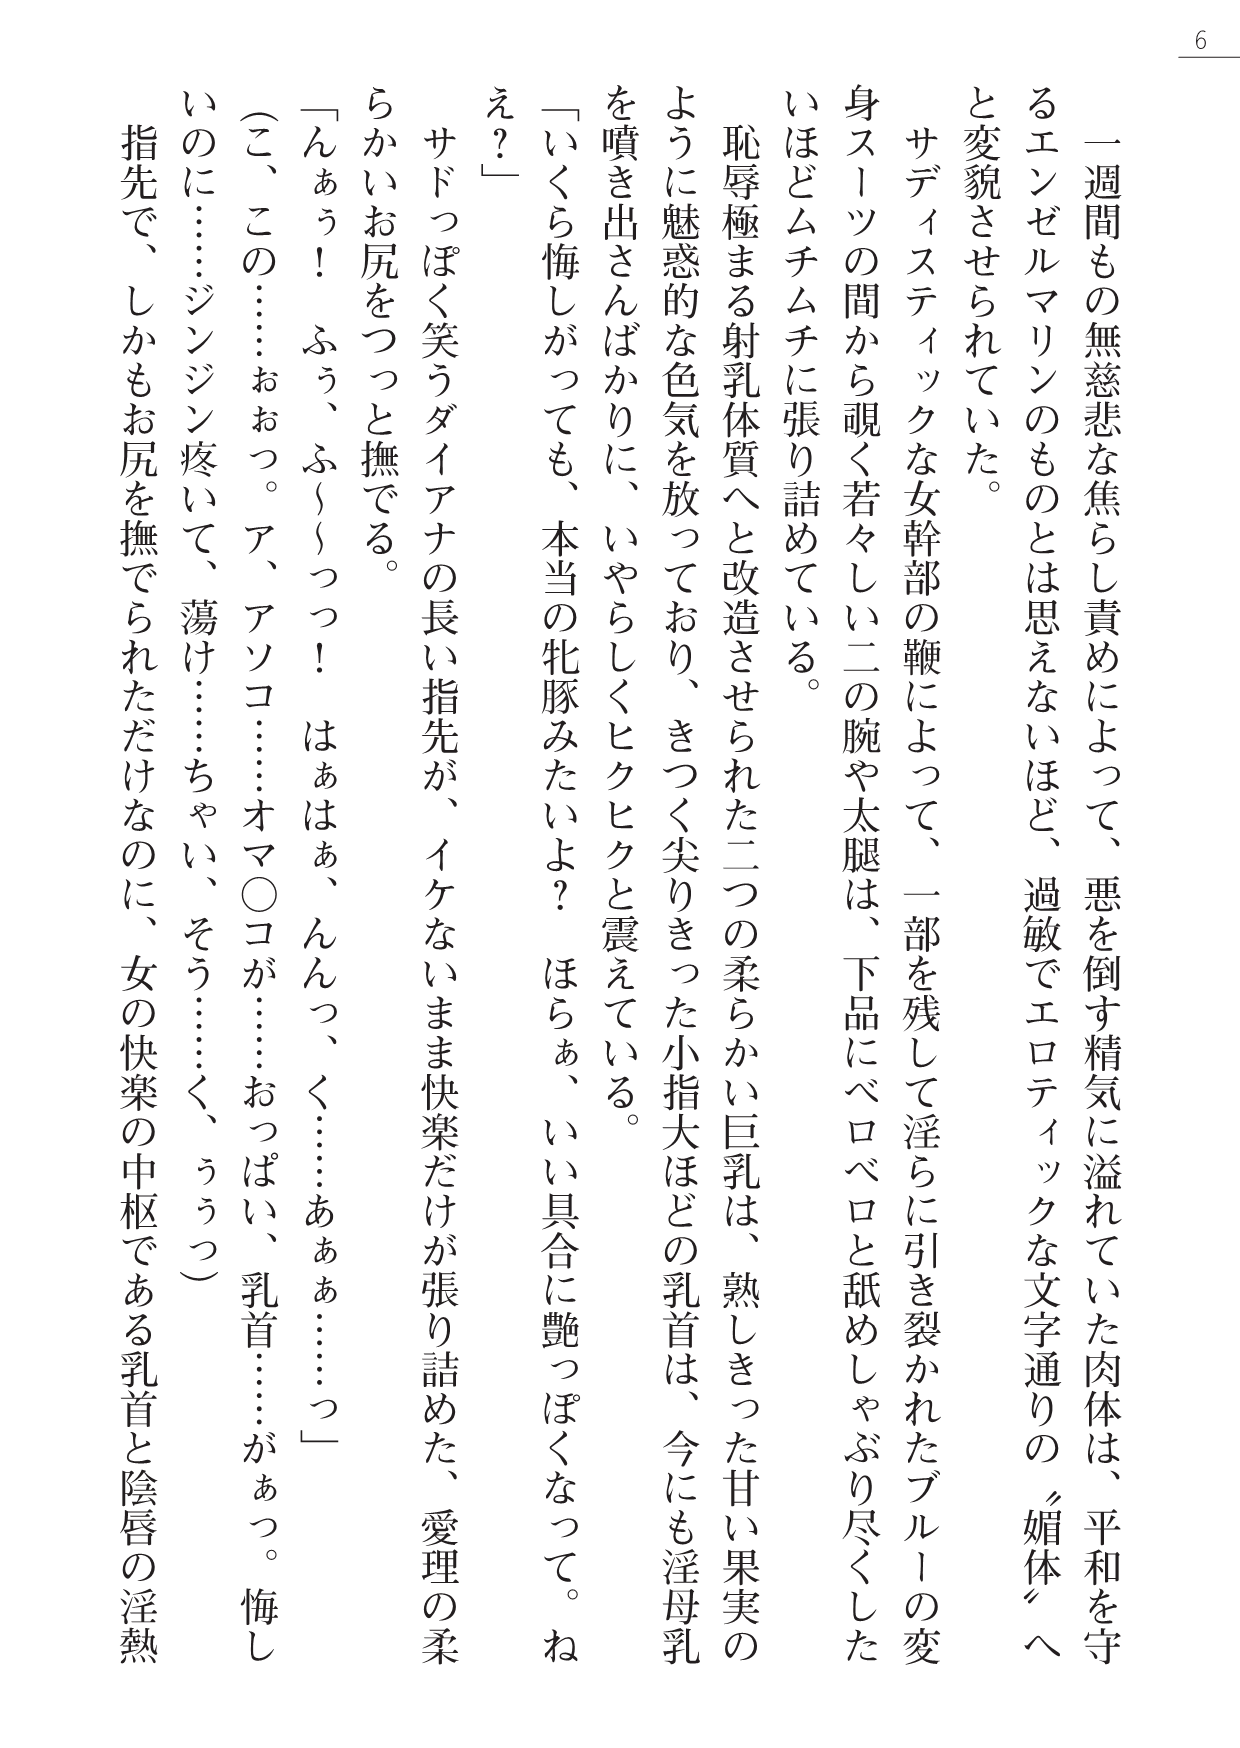 6
一週間もの無慈悲な焦らし責めによって、悪を倒す精気に溢れていた肉体は、平和を守
るエンゼルマリンのものとは思えないほど、過敏でエロティックな文字通りの〝媚体〟へ
と変貌させられていた。
サディスティックな女幹部の鞭によって、一部を残して淫らに引き裂かれたブルーの変
身スーツの間から覗く若々しい二の腕や太腿は、下品にベロベロと舐めしゃぶり尽くした
いほどムチムチに張り詰めている。
恥辱極まる射乳体質へと改造させられた二つの柔らかい巨乳は、熟しきった甘い果実の
ように魅惑的な色気を放っており、きつく尖りきった小指大ほどの乳首は、今にも淫母乳
を噴き出さんばかりに、いやらしくヒクヒクと震えている。
「いくら悔しがっても、本当の牝豚みたいよ？　ほらぁ、いい具合に艶っぽくなって。ね
え？」
サドっぽく笑うダイアナの長い指先が、イケないまま快楽だけが張り詰めた、愛理の柔
らかいお尻をつつっと撫でる。
「んぁぅ！　ふぅ、ふ～～っっ！　はぁはぁ、んんっ、く……あぁぁ……っ」
（こ、この……ぉぉっ。ア、アソコ……オマ〇コが……おっぱい、乳首……がぁっ。悔し
いのに……ジンジン疼いて、蕩け……ちゃい、そう……く、ぅぅっ）
指先で、しかもお尻を撫でられただけなのに、女の快楽の中枢である乳首と陰唇の淫熱